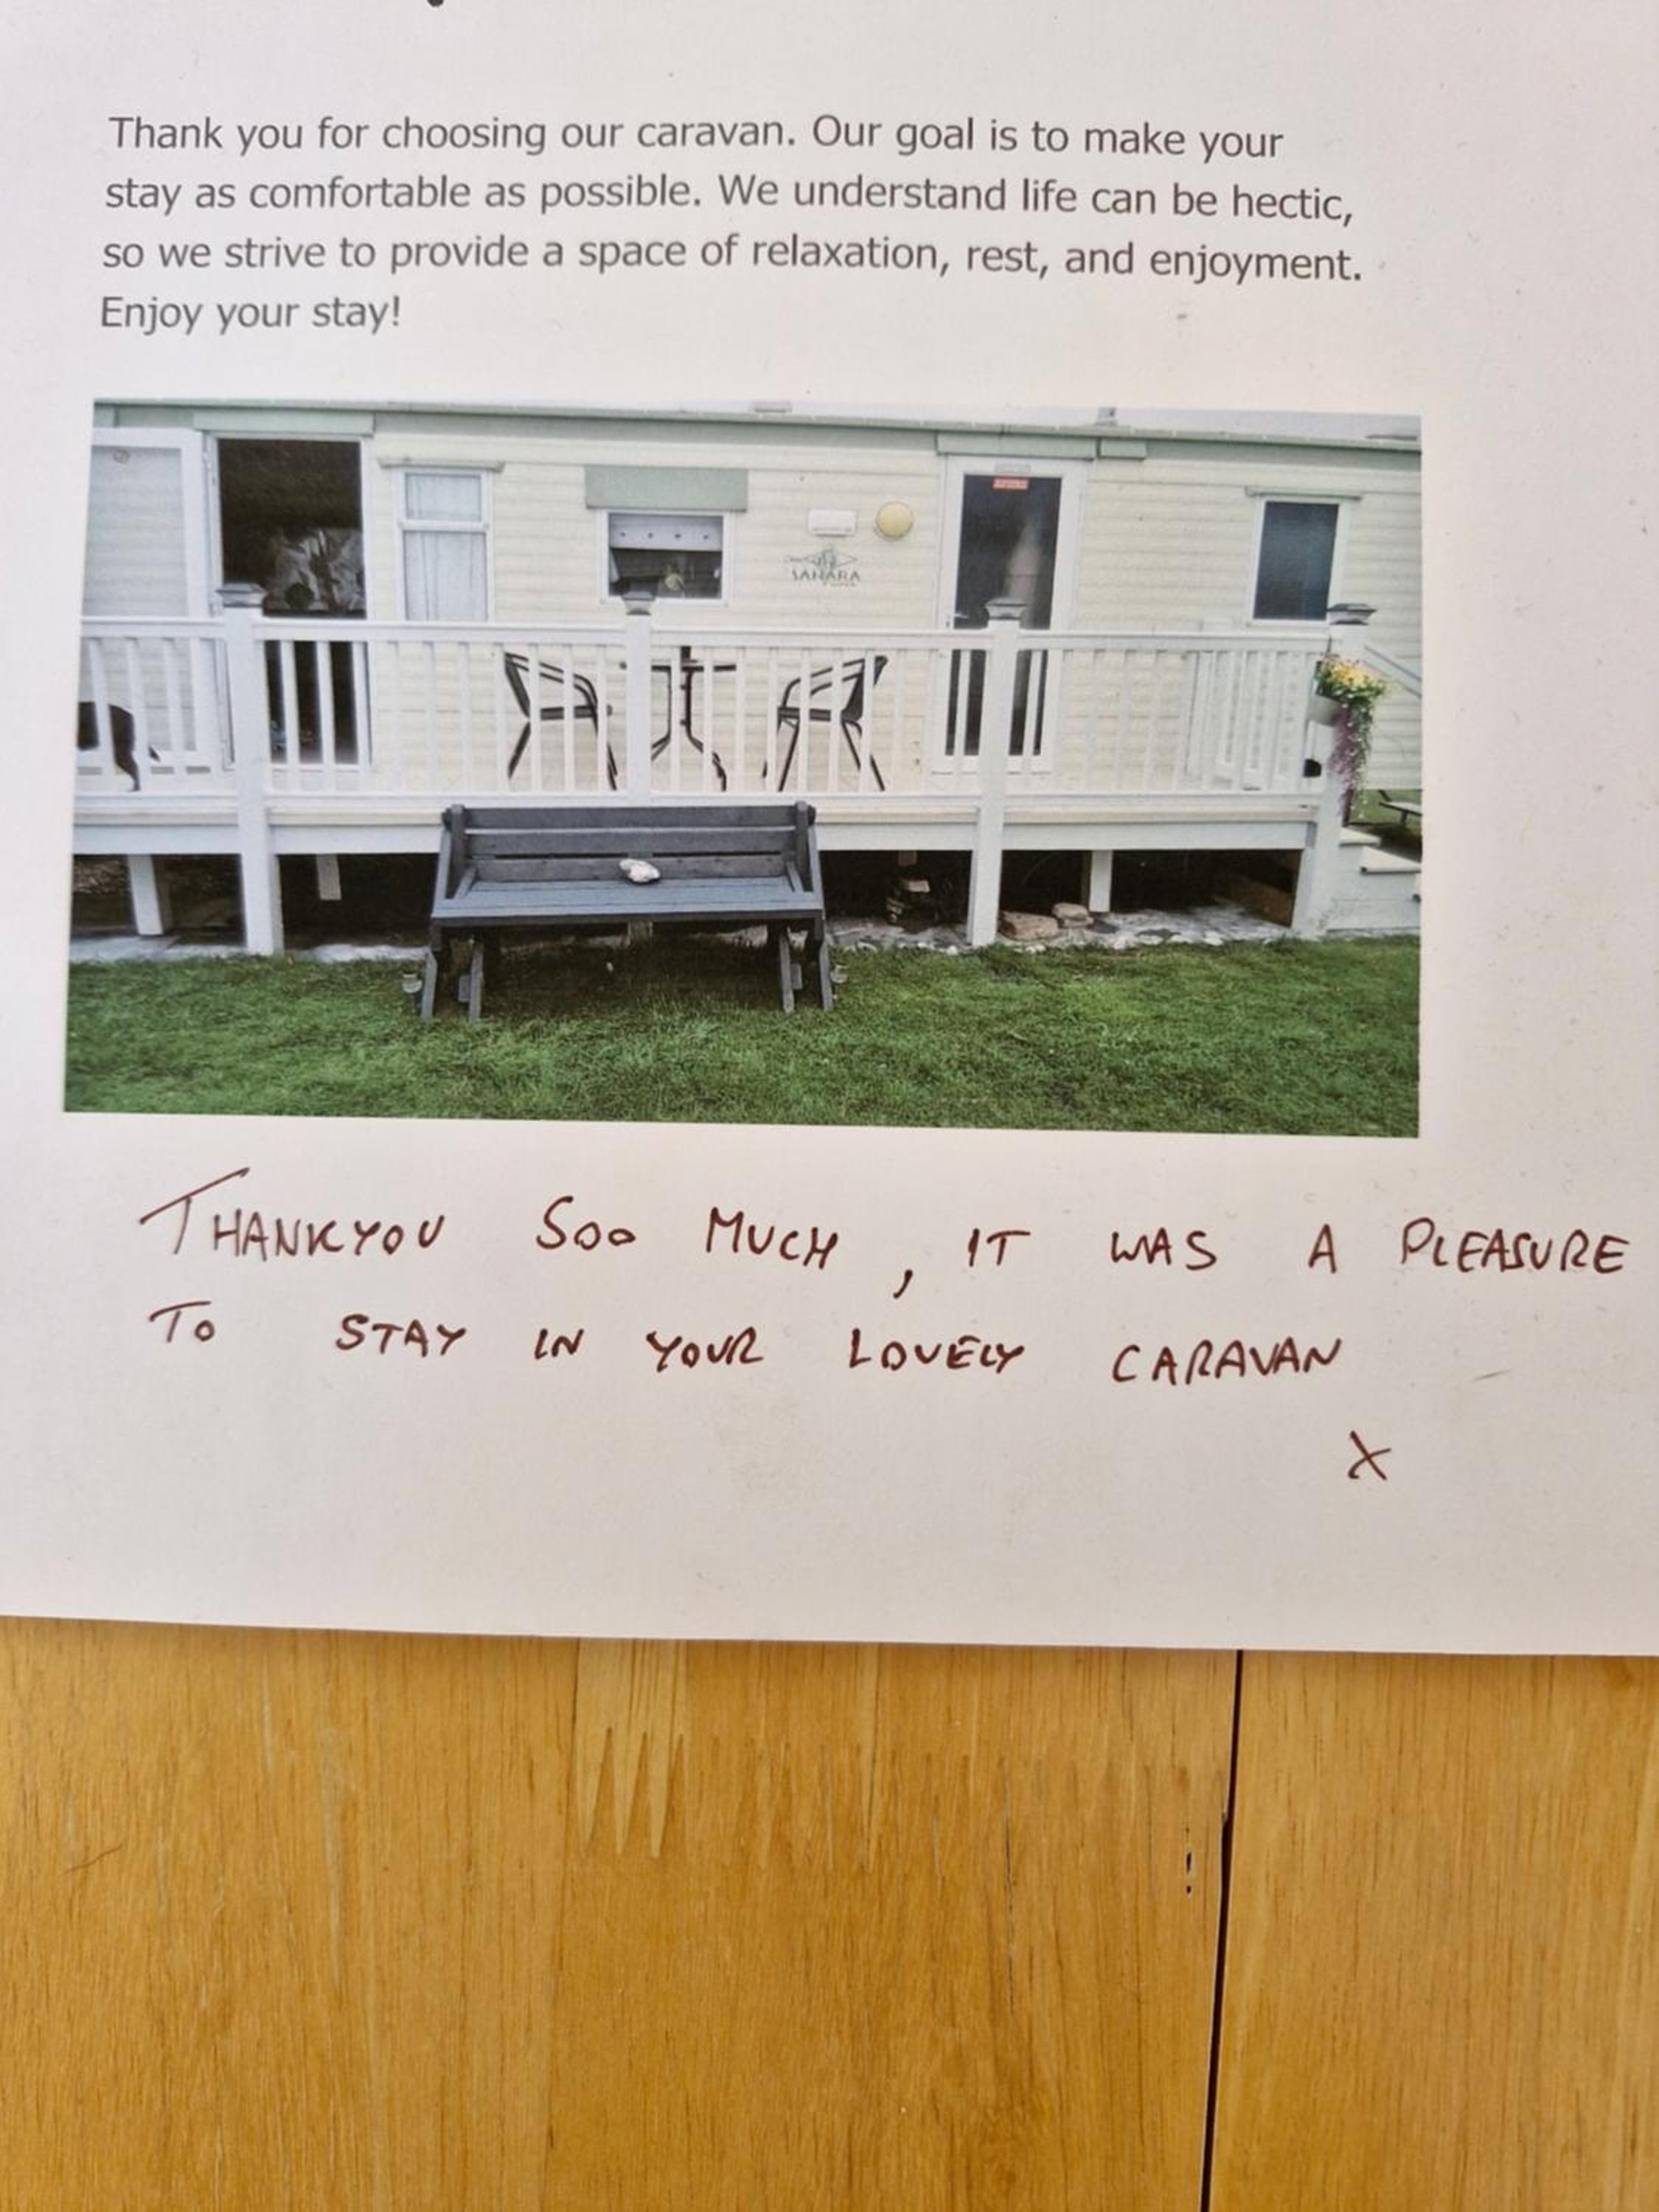 Thank you for choosing our caravan. Our goal is to make your
stay as comfortable as possible. We understand life can be hectic,
so we strive to provide a space of relaxation, rest, and enjoyment.
Enjoy your stay!
SAHARA
THANKYOU SOO MUCH, IT WAS A PLEASURE
TO STAY IN YOUR LOVELY CARAVAN
X